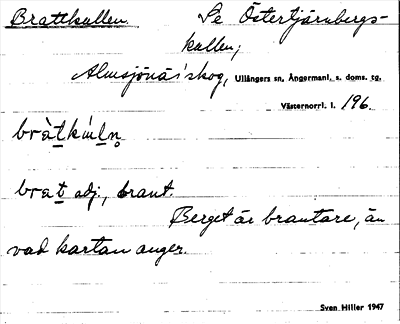 Brattkullen. Se Östertjärnbergs-
kullen;
Älmsjönäs skog, Ullångers sn, Ångermanl. s. doms. tg.
Västernorrl. l. 196.
bràtkúln̥
brat adj., brant.
Berget är brantare, än
vad kartan anger.
Sven Hiller 1947